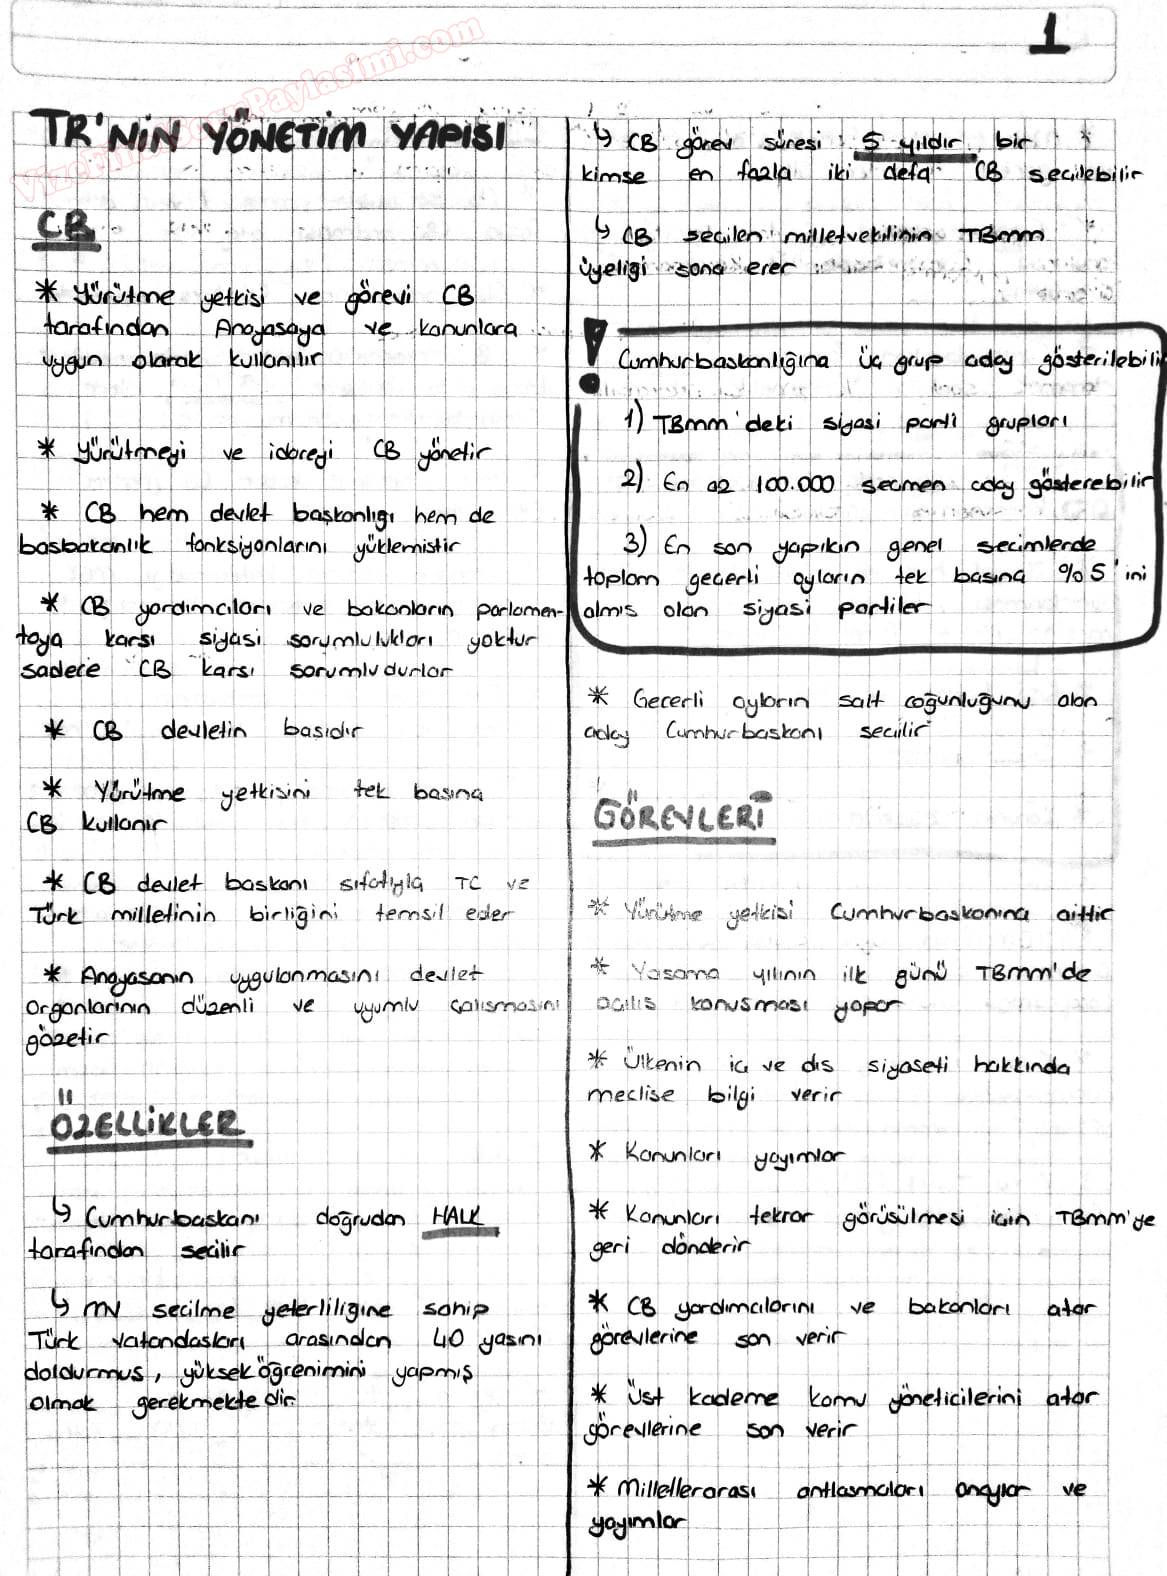 1
TR'NİN YÖNETİM YAPISI
CB
* Yürütme yetkisi ve görevi CB
tarafından Anayasaya ve kanunlara
uygun olarak kullanılır
* Yürütmeyi ve idareyi CB yönetir
* CB hem devlet başkanlığı hem de
basbakanlık fonksiyonlarını yüklemistir
* CB yardımcıları ve bakanların parlamen-
toya karsı siyasi sorumlulukları yoktur
sadece CB karsı sorumludurlar
* CB devletin basıdır
* Yürütme yetkisini tek basına
CB kullanır
* CB devlet baskanı sıfatıyla TC ve
Türk milletinin birliğini temsil eder
* Anayasanın uygulanmasını devlet
organlarının düzenli ve uyumlu çalısmasını
gözetir
ÖZELLİKLER
↳ Cumhurbaskanı doğrudan HALK
tarafından secilir
↳ MV secilme yeterliliğine sahip
Türk vatandasları arasından 40 yasını
doldurmus, yüksek öğrenimini yapmış
olmak gerekmektedir
↳ CB görev süresi 5 yıldır bir
kimse en fazla iki defa CB secilebilir
↳ CB secilen milletvekilinin TBMM
üyeliği sona erer
! Cumhurbaskanlığına üç grup aday gösterilebilir
1) TBMM'deki siyasi parti grupları
2) En az 100.000 secmen aday gösterebilir
3) En son yapılan genel secimlerde
toplam gecerli oyların tek basına %5'ini
almıs olan siyasi partiler
* Gecerli oyların salt coğunluğunu alan
aday Cumhurbaskanı secilir
GÖREVLERİ
* Yürütme yetkisi Cumhurbaskanına aittir
* Yasama yılının ilk günü TBMM'de
acılıs konusması yapar
* Ülkenin ic ve dıs siyaseti hakkında
meclise bilgi verir
* Kanunları yayımlar
* Kanunları tekrar görüsülmesi icin TBMM'ye
geri dönderir
* CB yardımcılarını ve bakanları atar
görevlerine son verir
* Üst kademe kamu yöneticilerini atar
görevlerine son verir
* Millellerarası antlasmaları onaylar ve
yayımlar